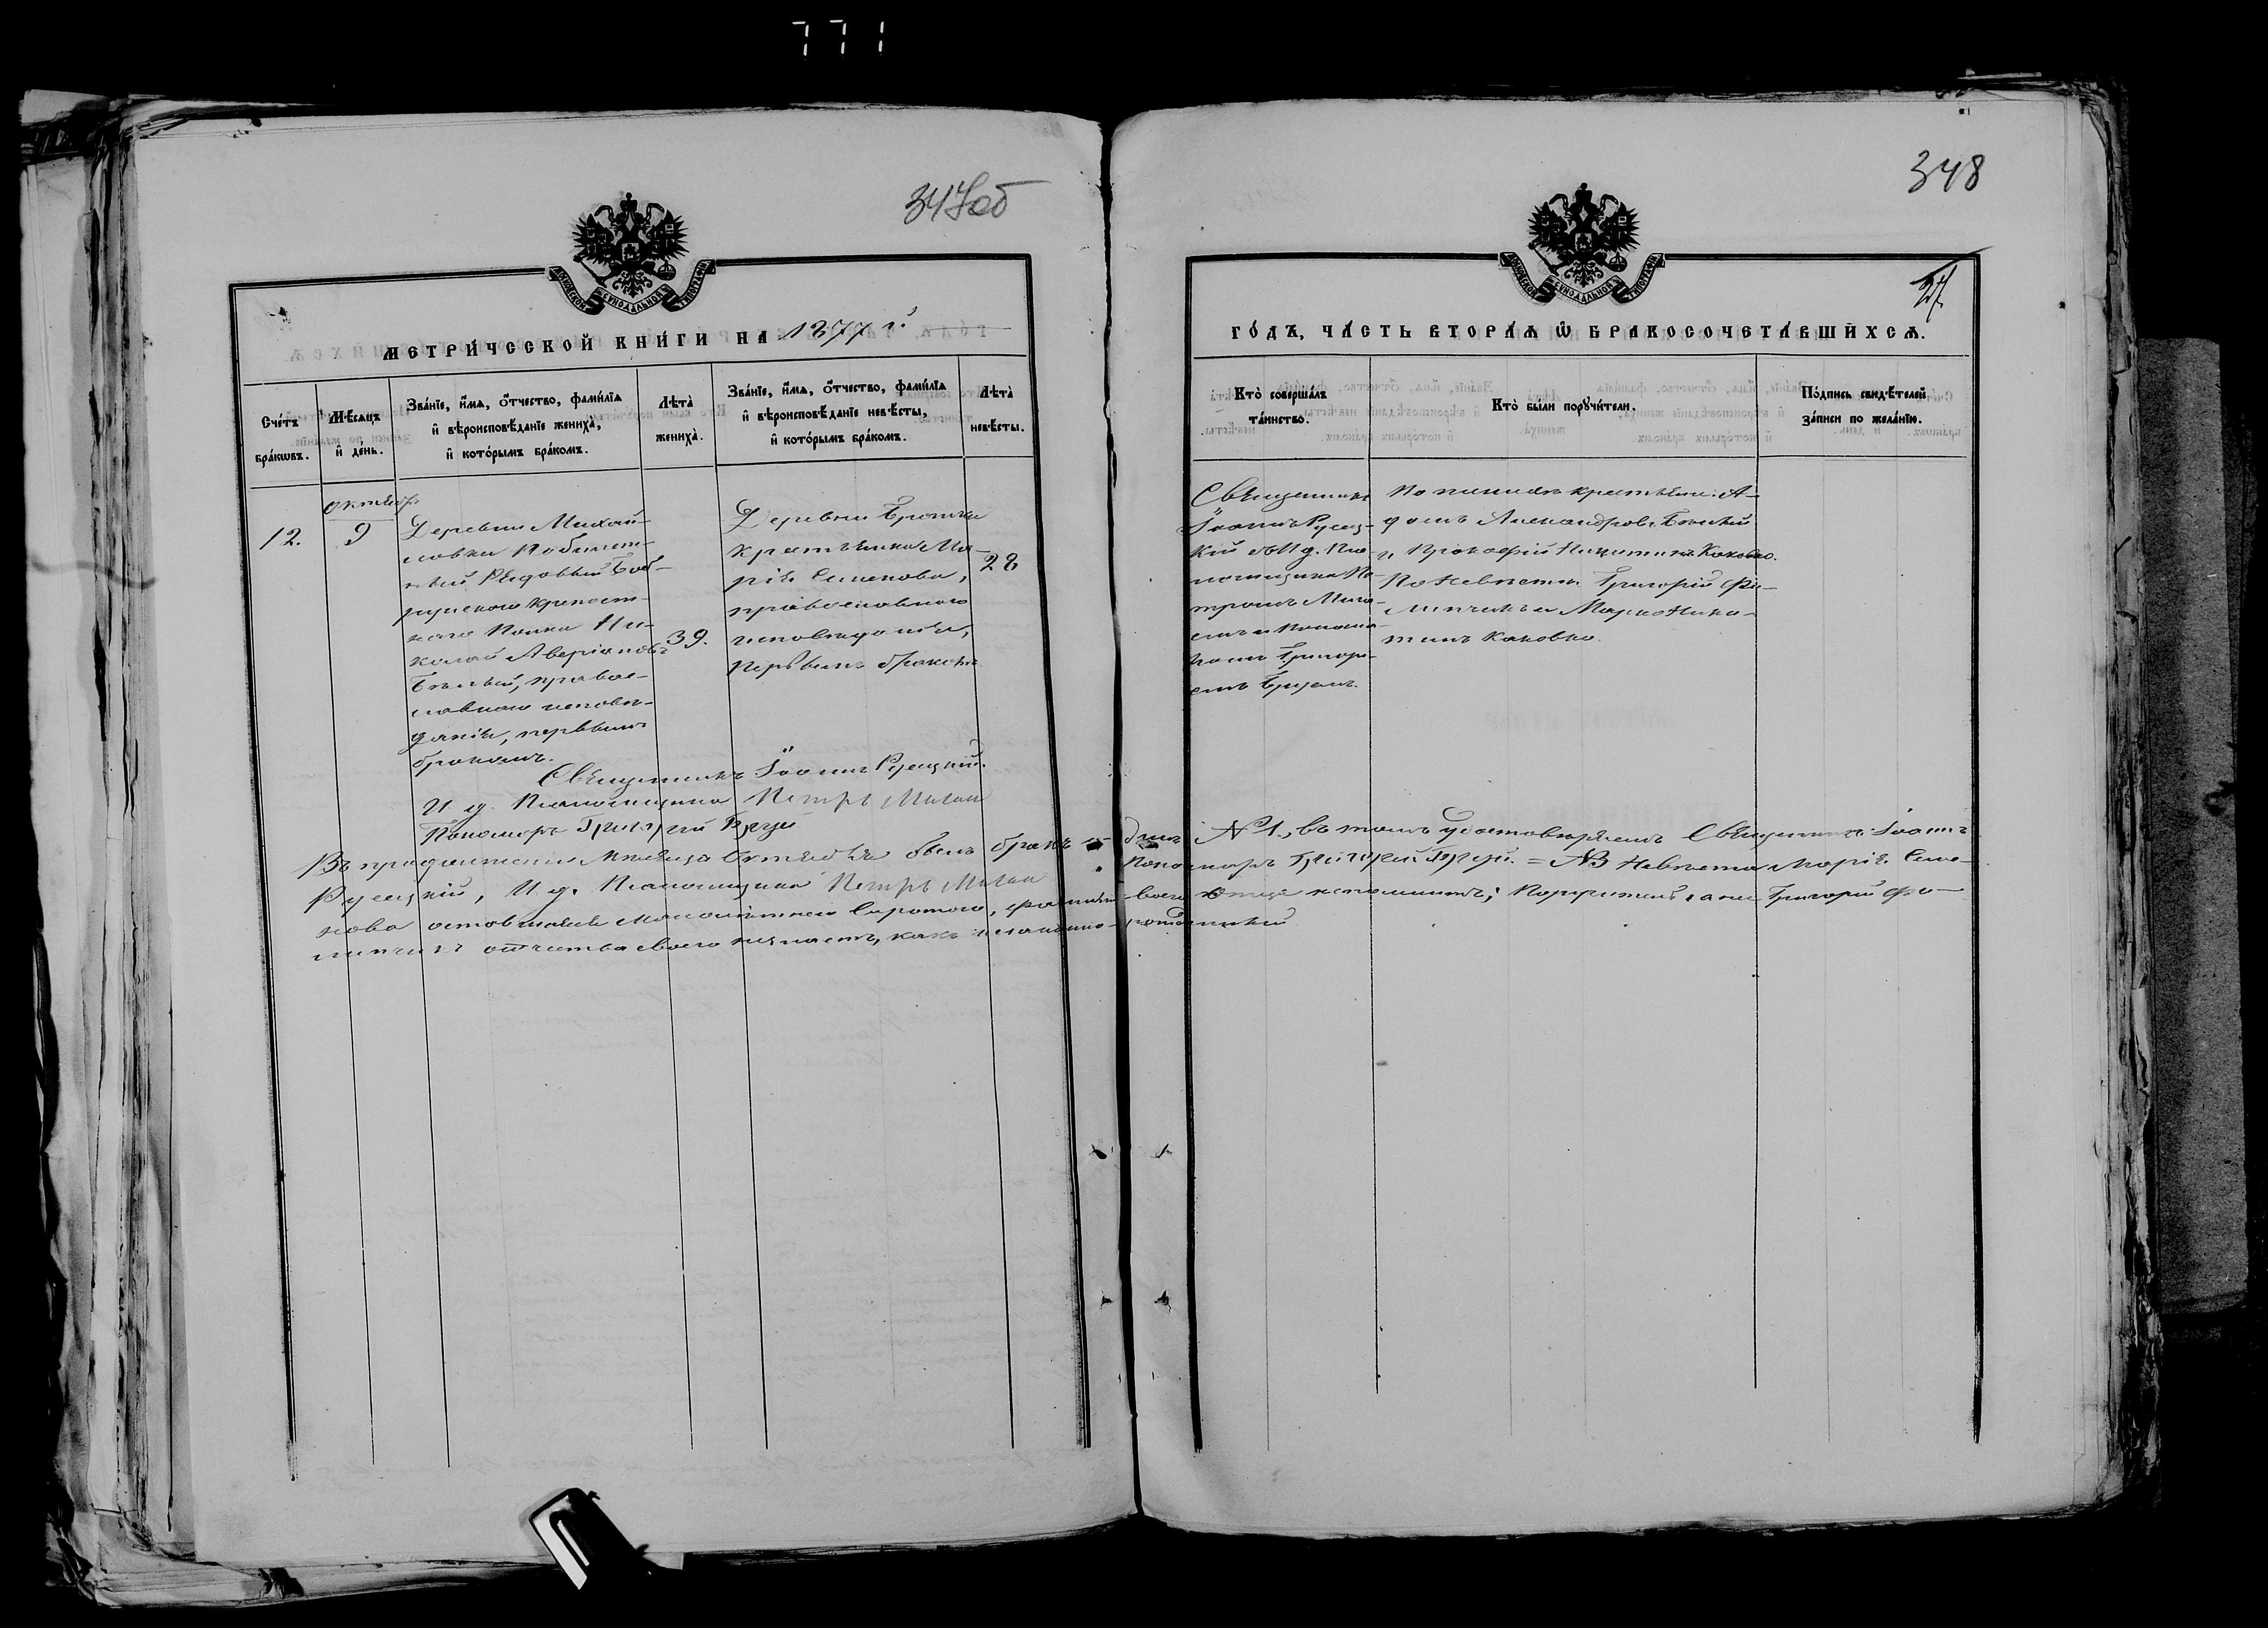 771
347 об
348
27.
МЕТРИ́ЧЕСКОЙ КНИ́ГИ НА 1877 г.
ГО́ДЪ, ЧА́СТЬ ВТОРА́Ѧ Ѿ БРАКОСОЧЕТА́ВШИХСѦ.
МОСКОВСКОЙ СѴНОДАЛЬНОЙ ТИПОГРАФІИ
МОСКОВСКОЙ СѴНОДАЛЬНОЙ ТИПОГРАФІИ
Сче́тъ бра́кѡвъ.
Мѣ́сѧцъ и҆ де́нь.
Зва́нїе, и҆́мѧ, ѻ҆́тчество, фами́лїѧ
и҆ вѣроисповѣ́данїе жениха̀,
и҆ кото́рымъ бра́комъ.
Лѣта̀ жениха̀.
Зва́нїе, и҆́мѧ, ѻ҆́тчество, фами́лїѧ
и҆ вѣроисповѣ́данїе невѣ́сты,
и҆ кото́рымъ бра́комъ.
Лѣта̀ невѣ́сты.
Кто̀ соверша́лъ та́инство.
Кто̀ бы́ли порꙋчи́тели.
По́дпись свидѣ́телей за́писи по жела́нїю.
12.
октябр.
9
Деревни Михай-
ловки Тобилет-
ный Рядовый Боб-
руйскаго Крепост-
наго Полка Ни-
колай Аверіановъ
Бѣлый, правос-
лавнаго исповѣ-
данія, первымъ
бракомъ.
39.
Деревни Бронки
крестьянка Ма-
рія Семенова,
православнаго
исповѣданія,
первымъ бракомъ
28
Священникъ
Іоаннъ Русец-
кій съ И. д. Пса-
ломщика Пе-
тромъ Мига-
емъ и Понома-
ремъ Григорі-
емъ Бруемъ.
По женихѣ крестьяне: А-
дамъ Александровъ Бѣлый
и Прокофій Никитинъ Каховко.
По Невѣстѣ: Григорій Фи-
липчикъ и Марко Ники-
тинъ Каховко.
Священникъ Іоаннъ Русецкій.
И. д. Псаломщика Петръ Мигай
Пономарь Григорій Бруй
Въ продолженіи мѣсяца Октября былъ бракъ одинъ № 1, въ томъ удостовѣряемъ Священникъ Іоаннъ
Русецкій, И. д. Псаломщика Петръ Мигай Пономарь Григорій Бруй. = NB Невѣста Марія Семе-
нова оставшаяся малолѣтнею Сиротою, фамиліи своего Отца непомнитъ; Поручитель же Григорій Фи-
липчикъ отчества своего незнаетъ, какъ незаконно-рожденный